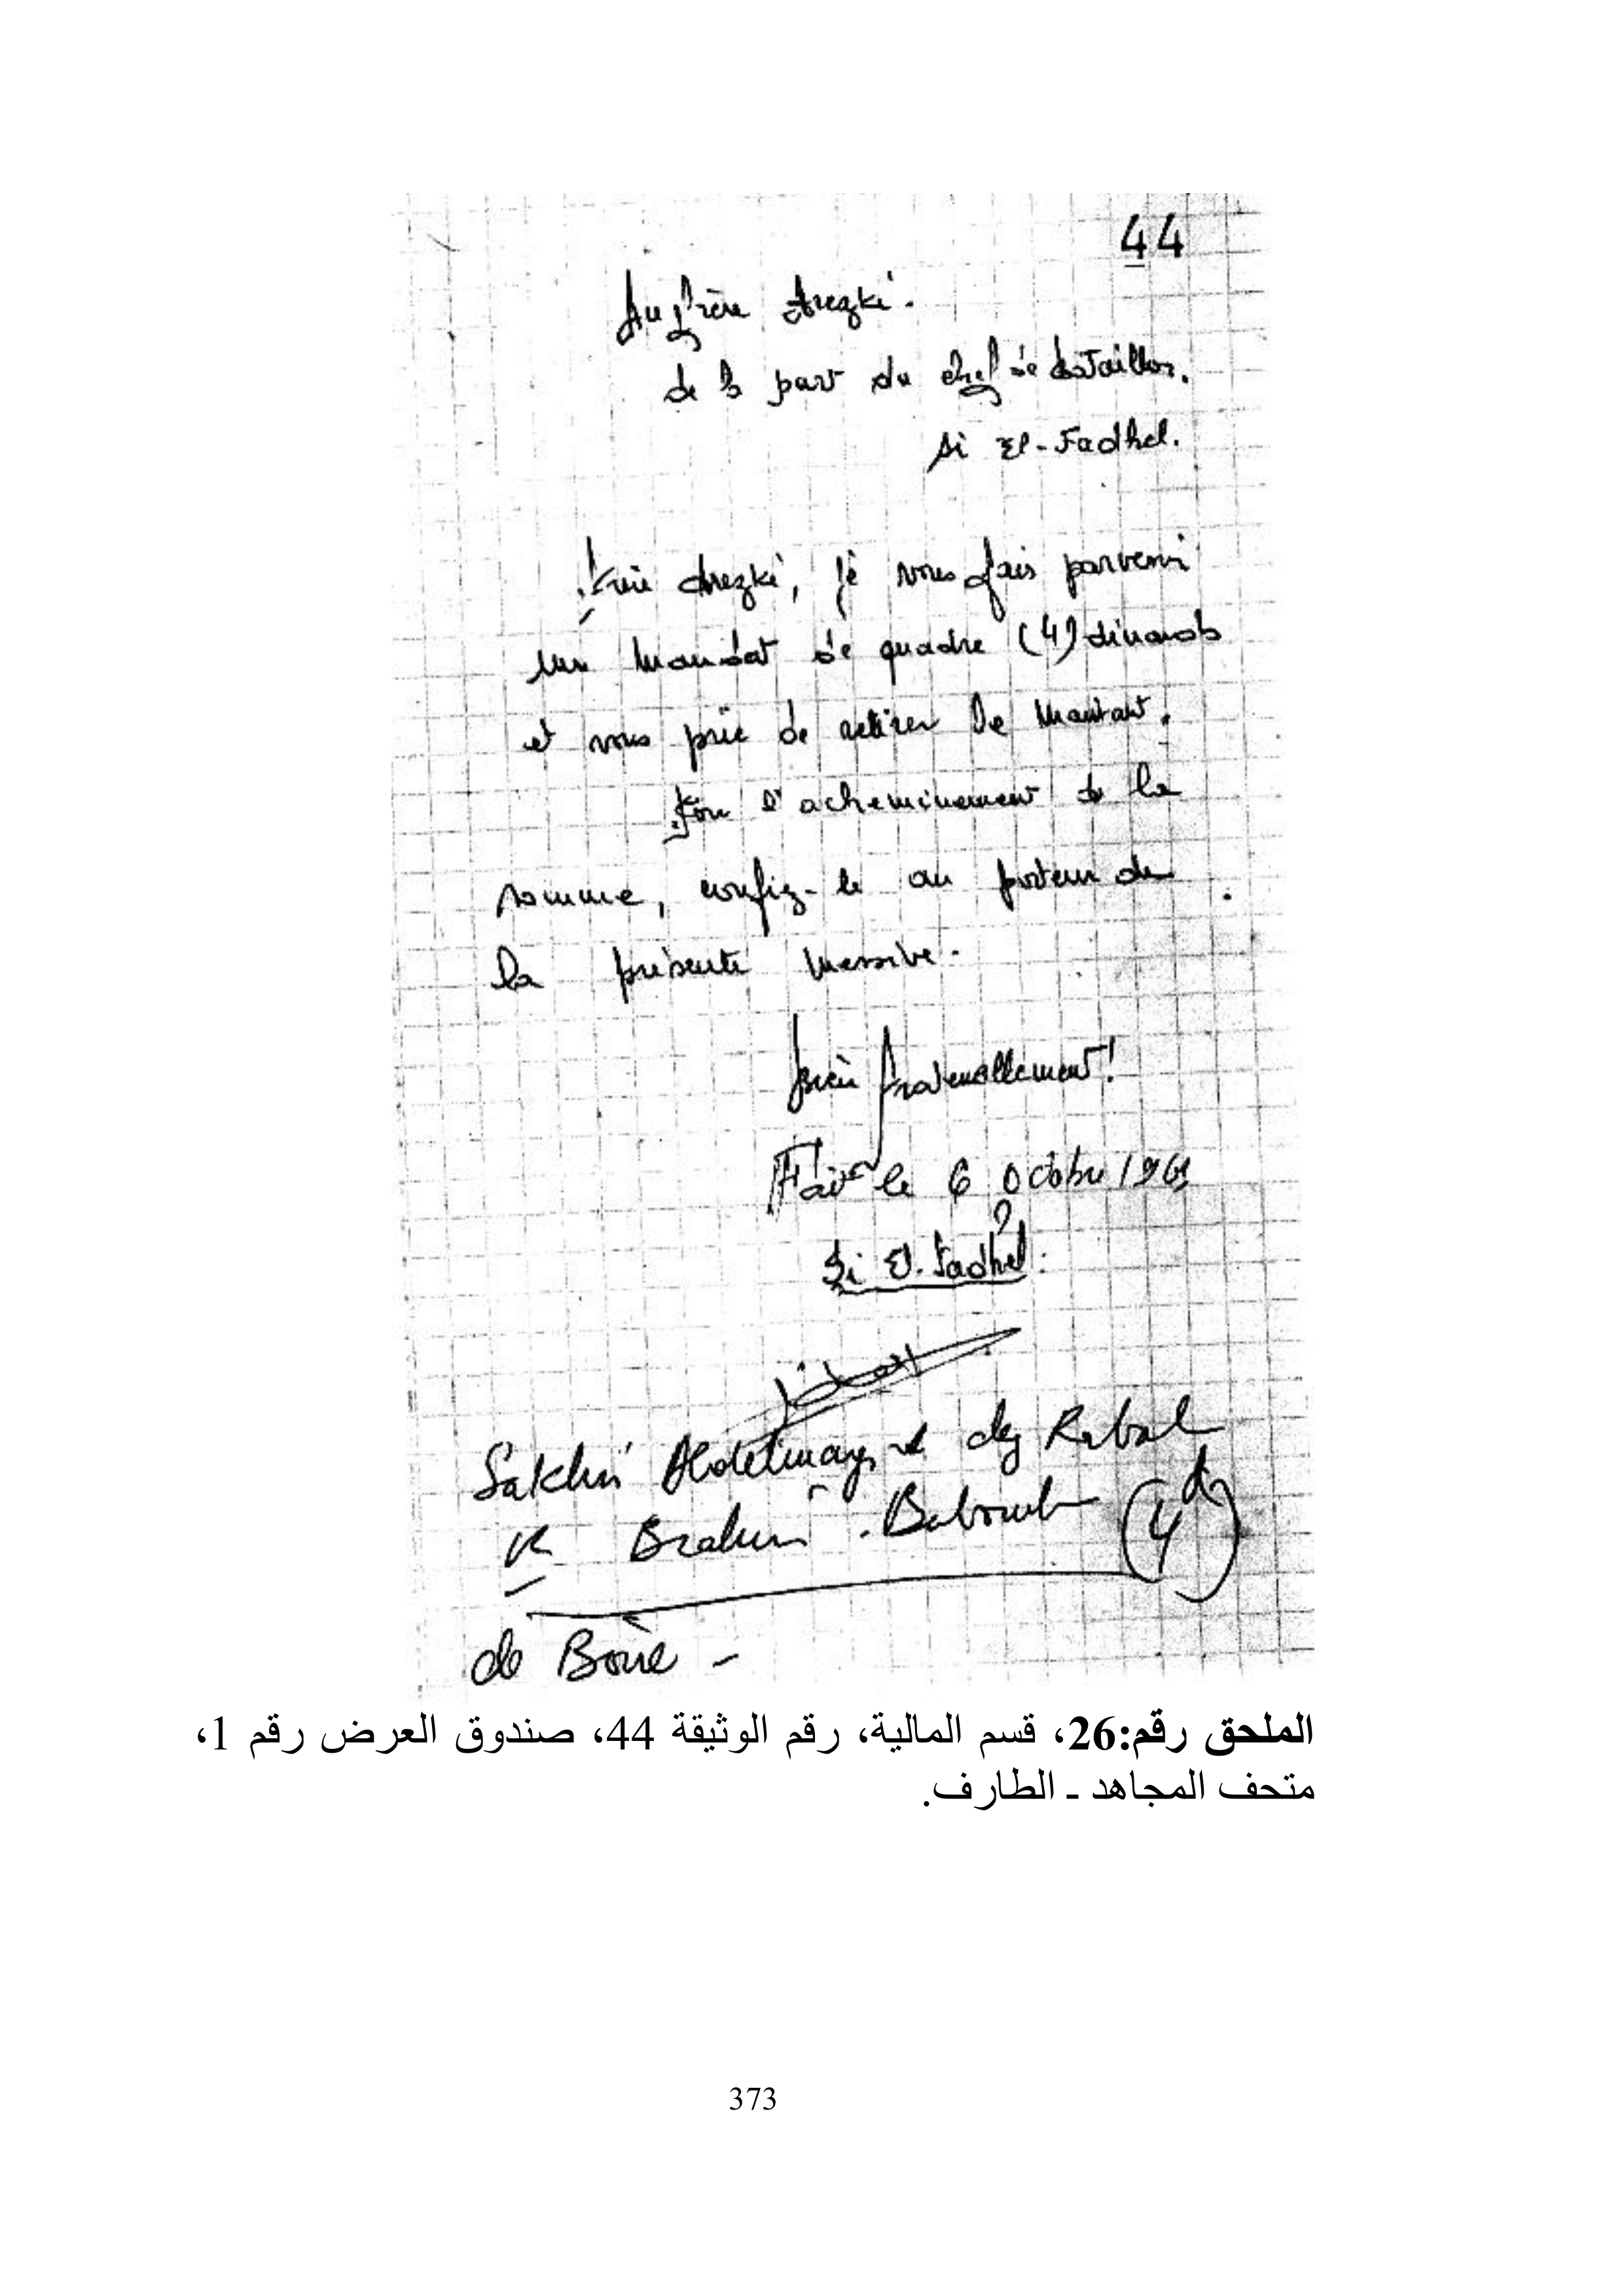 44
Au frère Arezki.
de la part du chef de bataillon.
Si El-Fadhel.
Frère Arezki, je vous fais parvenir
un mandat de quadre (4) dinards
et vous prie de retirer le montant.
Pour l'acheminement de la
somme, confiez-le au porteur de
la présente missive.
bien fraternellement!
Fait le 6 Octobre 1961
Si El. Fadhel.
Sakhri
Brahim (4d)
de Bône -
الملحق رقم:26، قسم المالية، رقم الوثيقة 44، صندوق العرض رقم 1،
متحف المجاهد ـ الطارف.
373